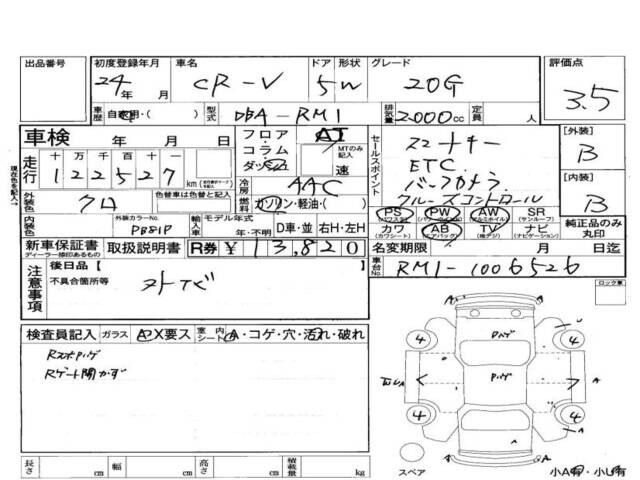 出品番号
初度登録年月
24年 月
車名
CR-V
ドア 形状
5W
グレード
20G
評価点
3.5
車歴 自家用・( )
型式 DBA-RM1
排気量 2000cc
定員 人
車検 年 月 日
走行 十万千百十一
122527
km
現在色を記入→
外装色 クロ
色替車は色替と記入
内装色
外装カラーNo.
PB81P
フロア・
コラム・
ダッシュ
AT
MTのみ記入
速
冷房 AAC
燃料 ガソリン・軽油・( )
輸入車
モデル年式
年・不明
D車・並
右H・左H
セールスポイント
スマートキー
ETC
バックカメラ
クルーズコントロール
PS (パワーステ) PW (パワーウインド) AW (アルミホイル) SR (サンルーフ)
カワ (カワシート) AB (エアバッグ) TV (地デジ) ナビ (ナビゲーション)
【外装】
B
【内装】
B
純正品のみ丸印
新車保証書
ディーラー捺印あるもの
取扱説明書
R券 ¥13,820
名変期限 月 日迄
車台No. RM1-1006526
注意事項
後日品【 】
不具合箇所等
ロック車
検査員記入
ガラス A P X要ス
室内シート A・コゲ・穴・汚れ・破れ
Rゲート開かず
Pハゲ
Pハゲ
U
A
A
A
4
4
4
4
スペア
小A有・小U有
長さ cm
幅 cm
高さ cm
積載量 kg